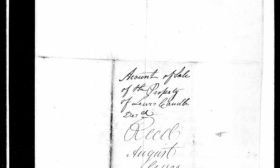 Account of Sale
of the Property
of Lewis
Decd
Recd
August